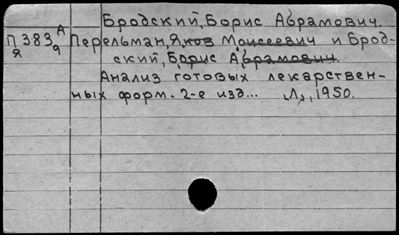 Бродский, Борис Абрамович.
П 383 А
Я 9
Перельман, Яков Моисеевич и Брод-
ский, Борис Абрамович.
Анализ готовых лекарствен-
ных форм. 2-е изд... Л., 1950.